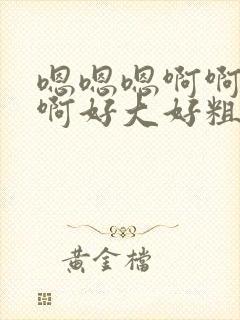 嗯嗯嗯啊啊
啊好大好粗
黃金檔